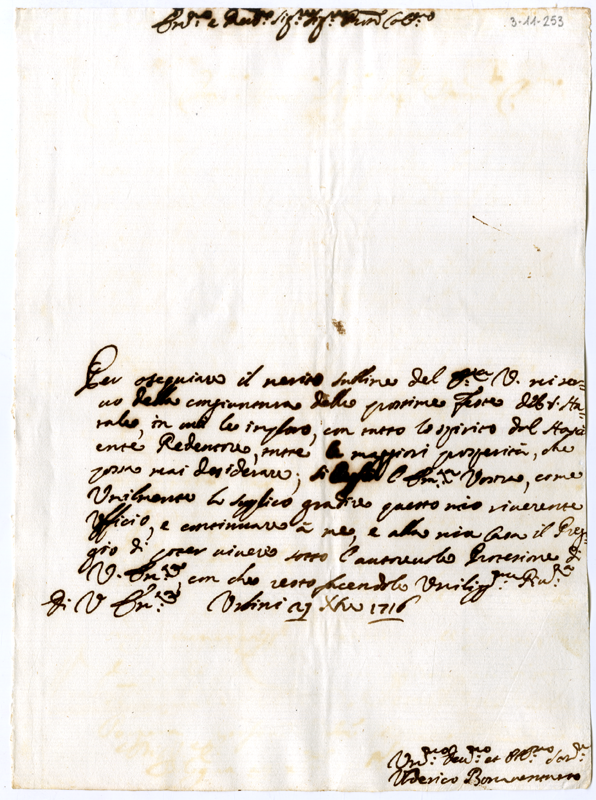 3-11-253
Em.mo e Rev.mo Sig.r Sig.r Pron Col.mo
Per ossequiare il merito sublime del V. mi ser-
uo della congiuntura delle prossime Feste del S. Na-
tale, in cui le imploro, con tutto lo spirito dal Nasc
ente Redentore, tutte le maggiori prosperità, che
possa mai desiderare; l'Em.za Vostra, come
Vmilmente la supplico gradire questo mio riuerente
Vfficio, e continuare à me, e alla mia Casa il Preg-
gio di poter uiuere sotto l'autoreuole Protezione di
V. Em.za, con che resto facendole Vmiliss.ma Riu.za
Di V. Em.za Vrbini 29 Xbre 1716
Vm.mo Deu.mo et Obl.mo Ser.re
Vderico Bonauentura